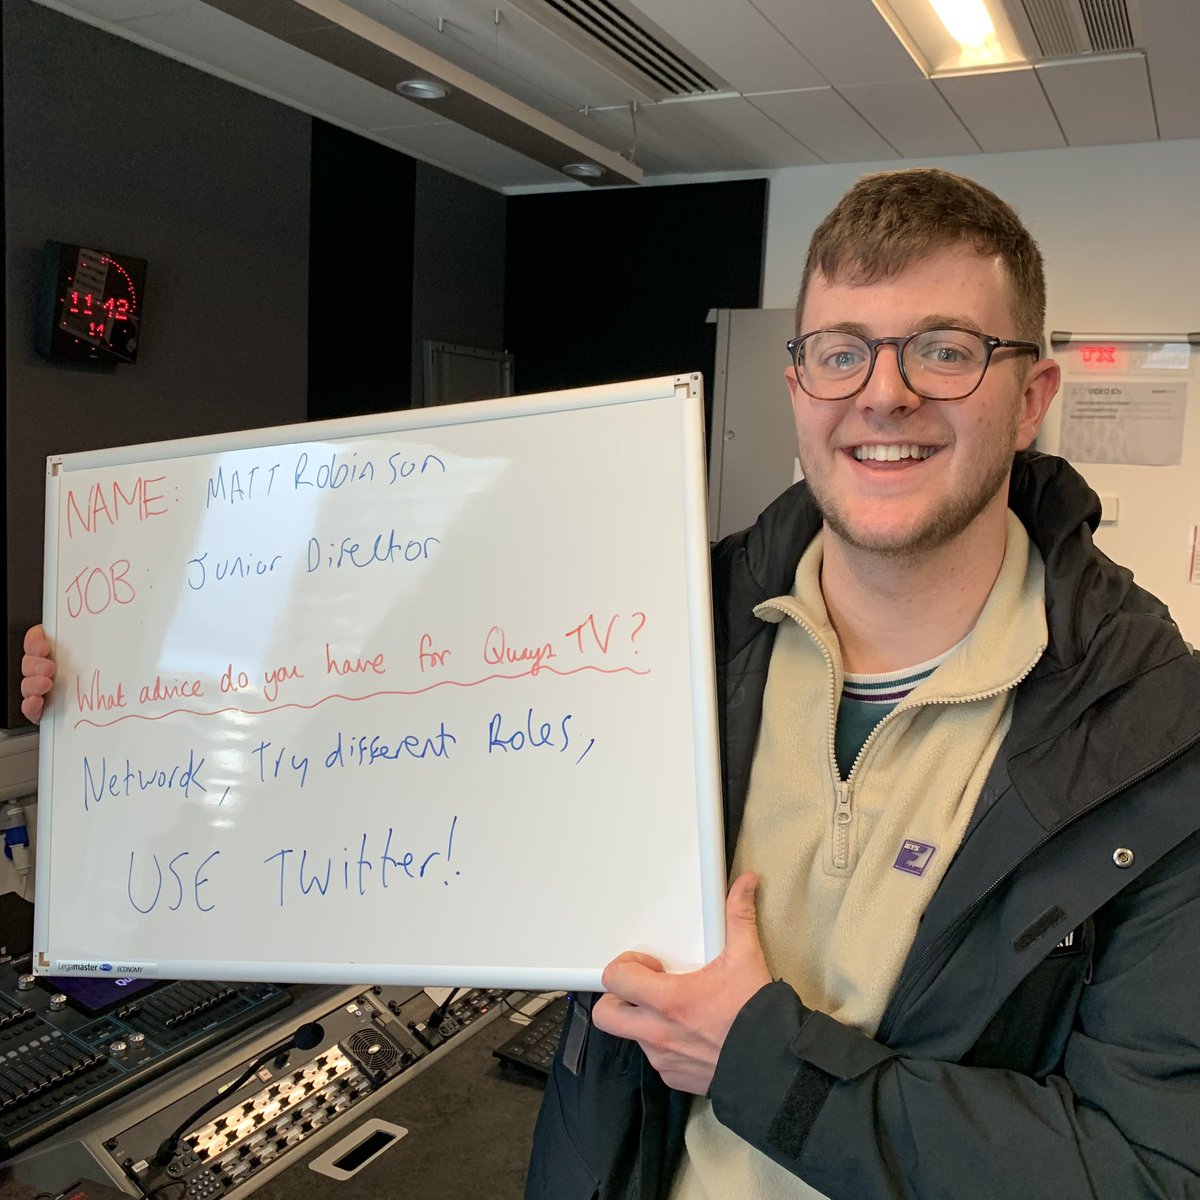 11:42
14
TX
VIDEO IDs
NAME: MATT Robinson
JOB: Junior Director
What advice do you have for Quays TV?
Network, Try different Roles,
USE Twitter!
Legamaster ECONOMY